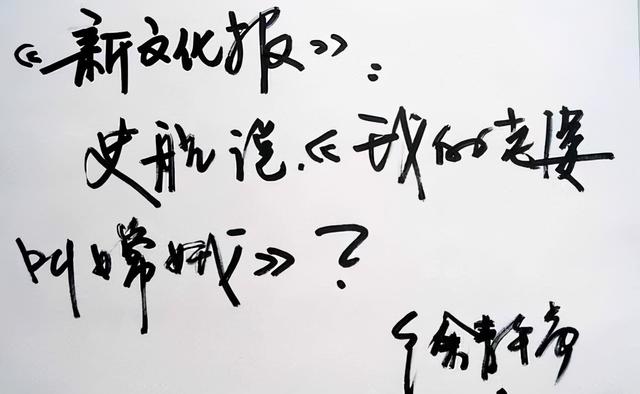 《新文化报》：
史航说《我的老婆
叫嫦娥》？